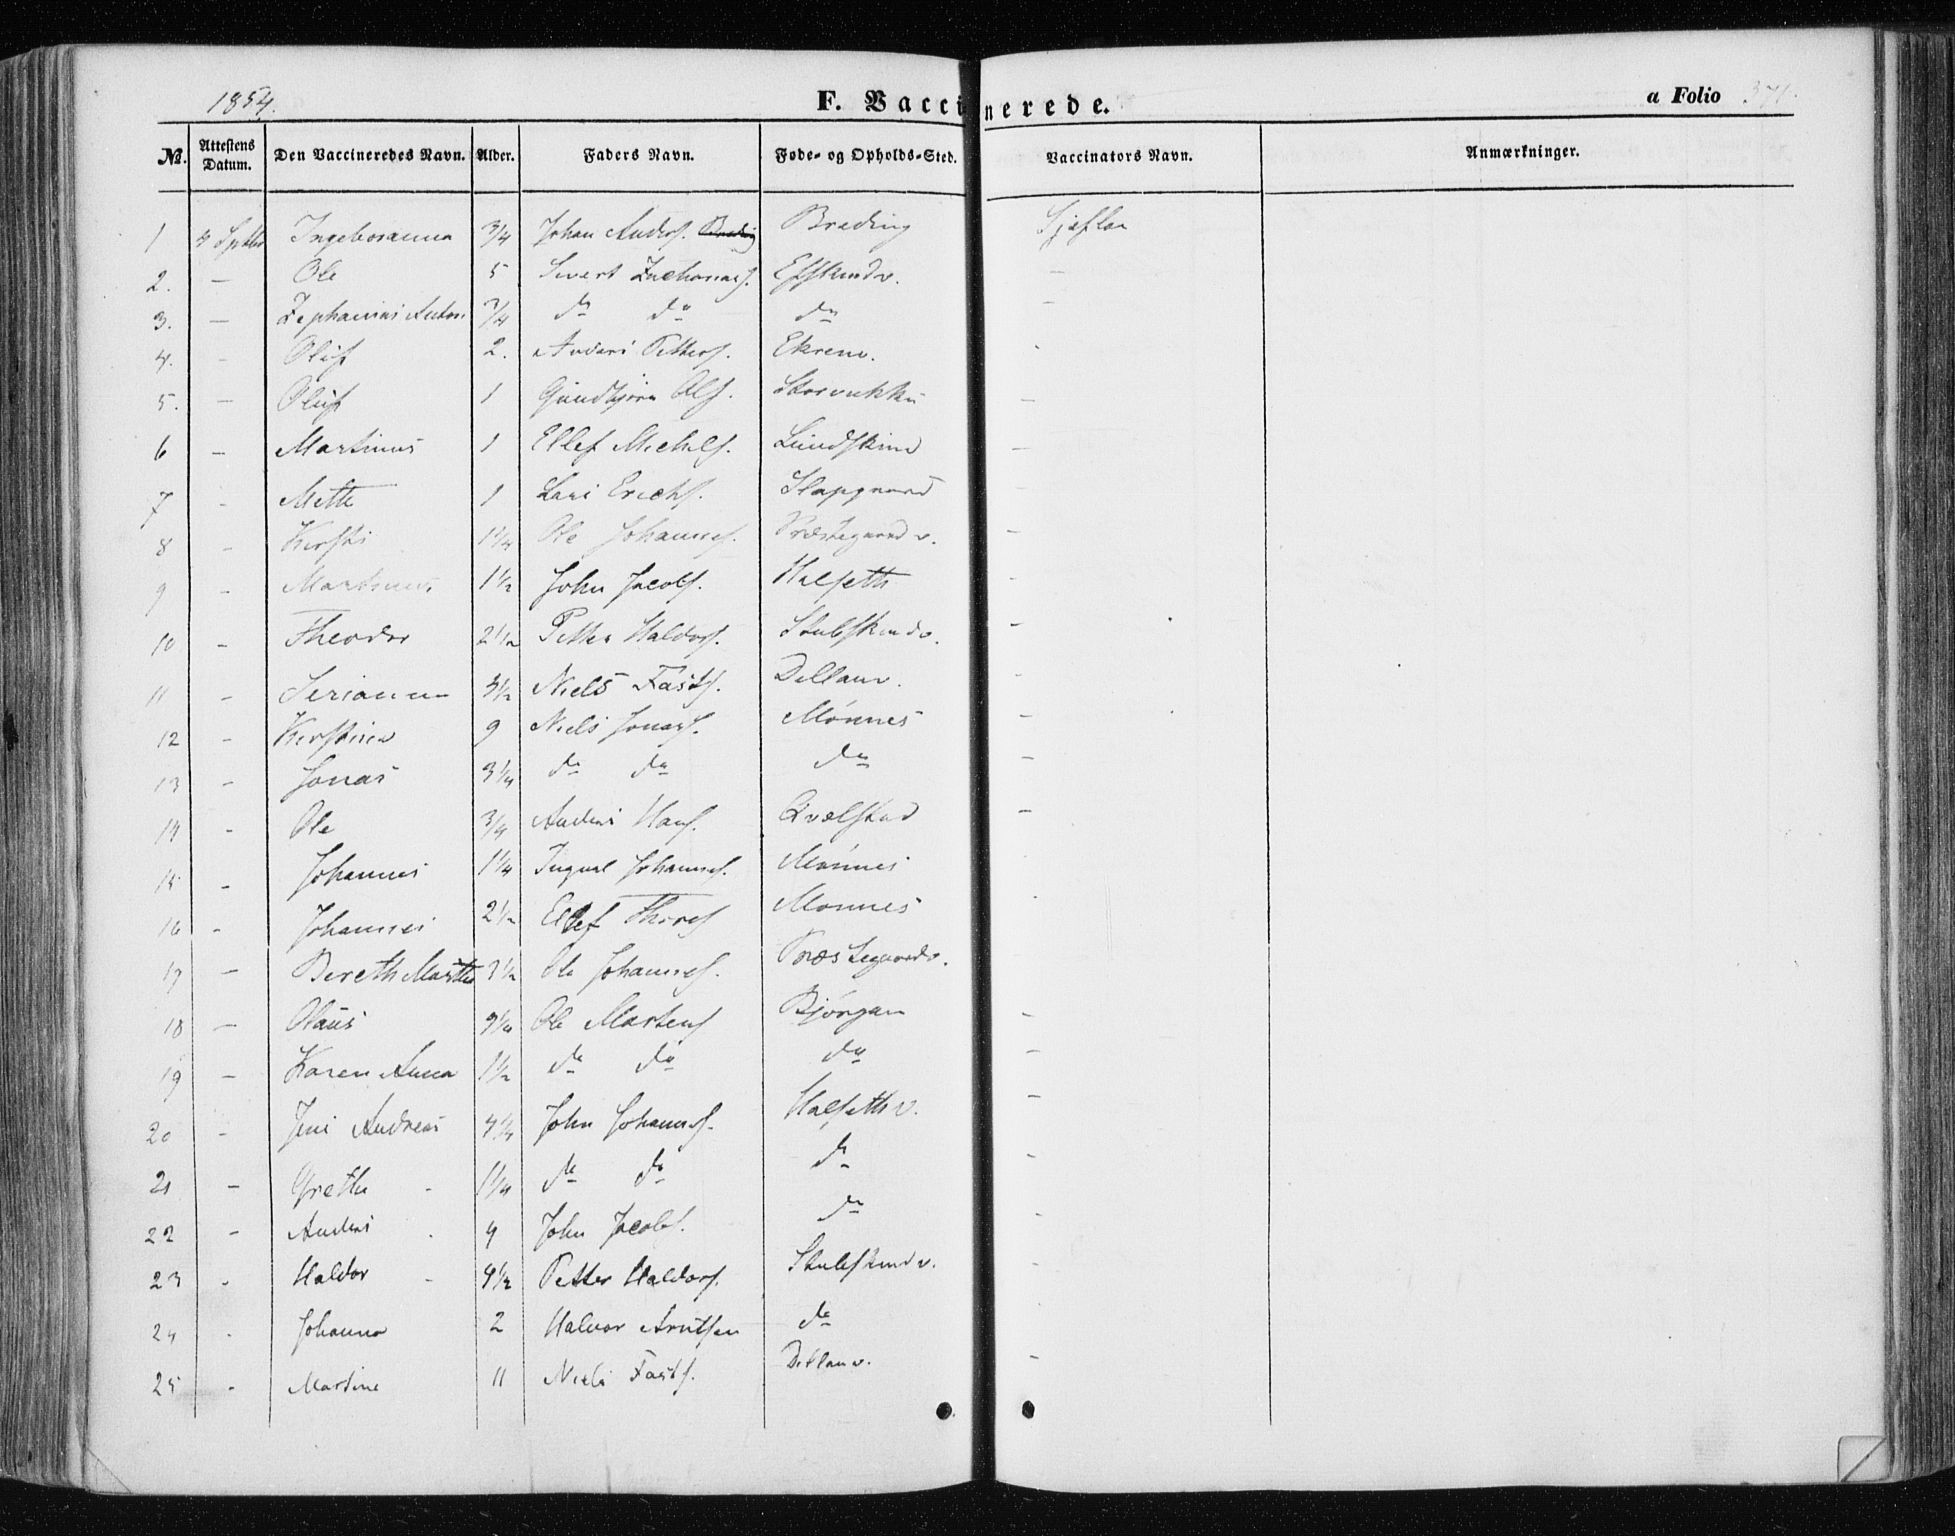 1854.
F. Vaccinerede.
a Folio 371.
No. Attestens Datum. Den Vaccineredes Navn. Alder. Faders Navn. Føde- og Opholds-Sted. Vaccinators Navn. Anmærkninger.
1 4 Septbr Ingeboranna 3/4 Johan Anders. Brading
2. — Ole 5 Sivert Zachariass. —
3. — 3/4 do do do —
4. - Oluf 2. Anders Petters. Ekrenv. -
5. — Oluf 1 Gundbjørn Ols. Storvukku —
6 — Martinus 1 Ellef Michels. Lundskind —
7 - Mette 1 Lars Erichs. Slapgaard -
8 - Kirsti 1 1/4 Ole Johanness. Præstegaardv. -
9 - Martinus 1 1/2 John Jacobs. Halseth -
10 - Theodor 2 1/2 Petter Haldors. Stubskindv. -
11 - Serianna 3 1/2 Niels Fasts. Dillanv. -
12 - Kirstina 9 Niels Jonass. Mönnes -
13 - Jonas 3 1/4 do do do -
14 - Ole 3/4 Anders Hans. Qvælstad -
15 - Johannes 1 1/4 Ingvel Johanness. Mönnes
16 - Johannes 2 1/2 Ellef Thores Mönnes
17 - Bereth Martha 3 1/2 Ole Johanness. Præstegaardv.
18 — Olaus 3 1/4 Ole Mortens Bjórgan -
19 — Karen Anna 1 1/2 do do do -
20 - Jens Andreas 4 3/4 John Johanness. Halsethv. -
21 - Grethe 1 1/4 do do do -
22 - Anders 4 John Jacobs. do -
23 - Haldor 4 1/2 Petter Haldors. Stubskindv. -
24 - Johanna 2 Halvor Arntsen do -
25 - Martine 11 Niels Fasts. Dillanv. -